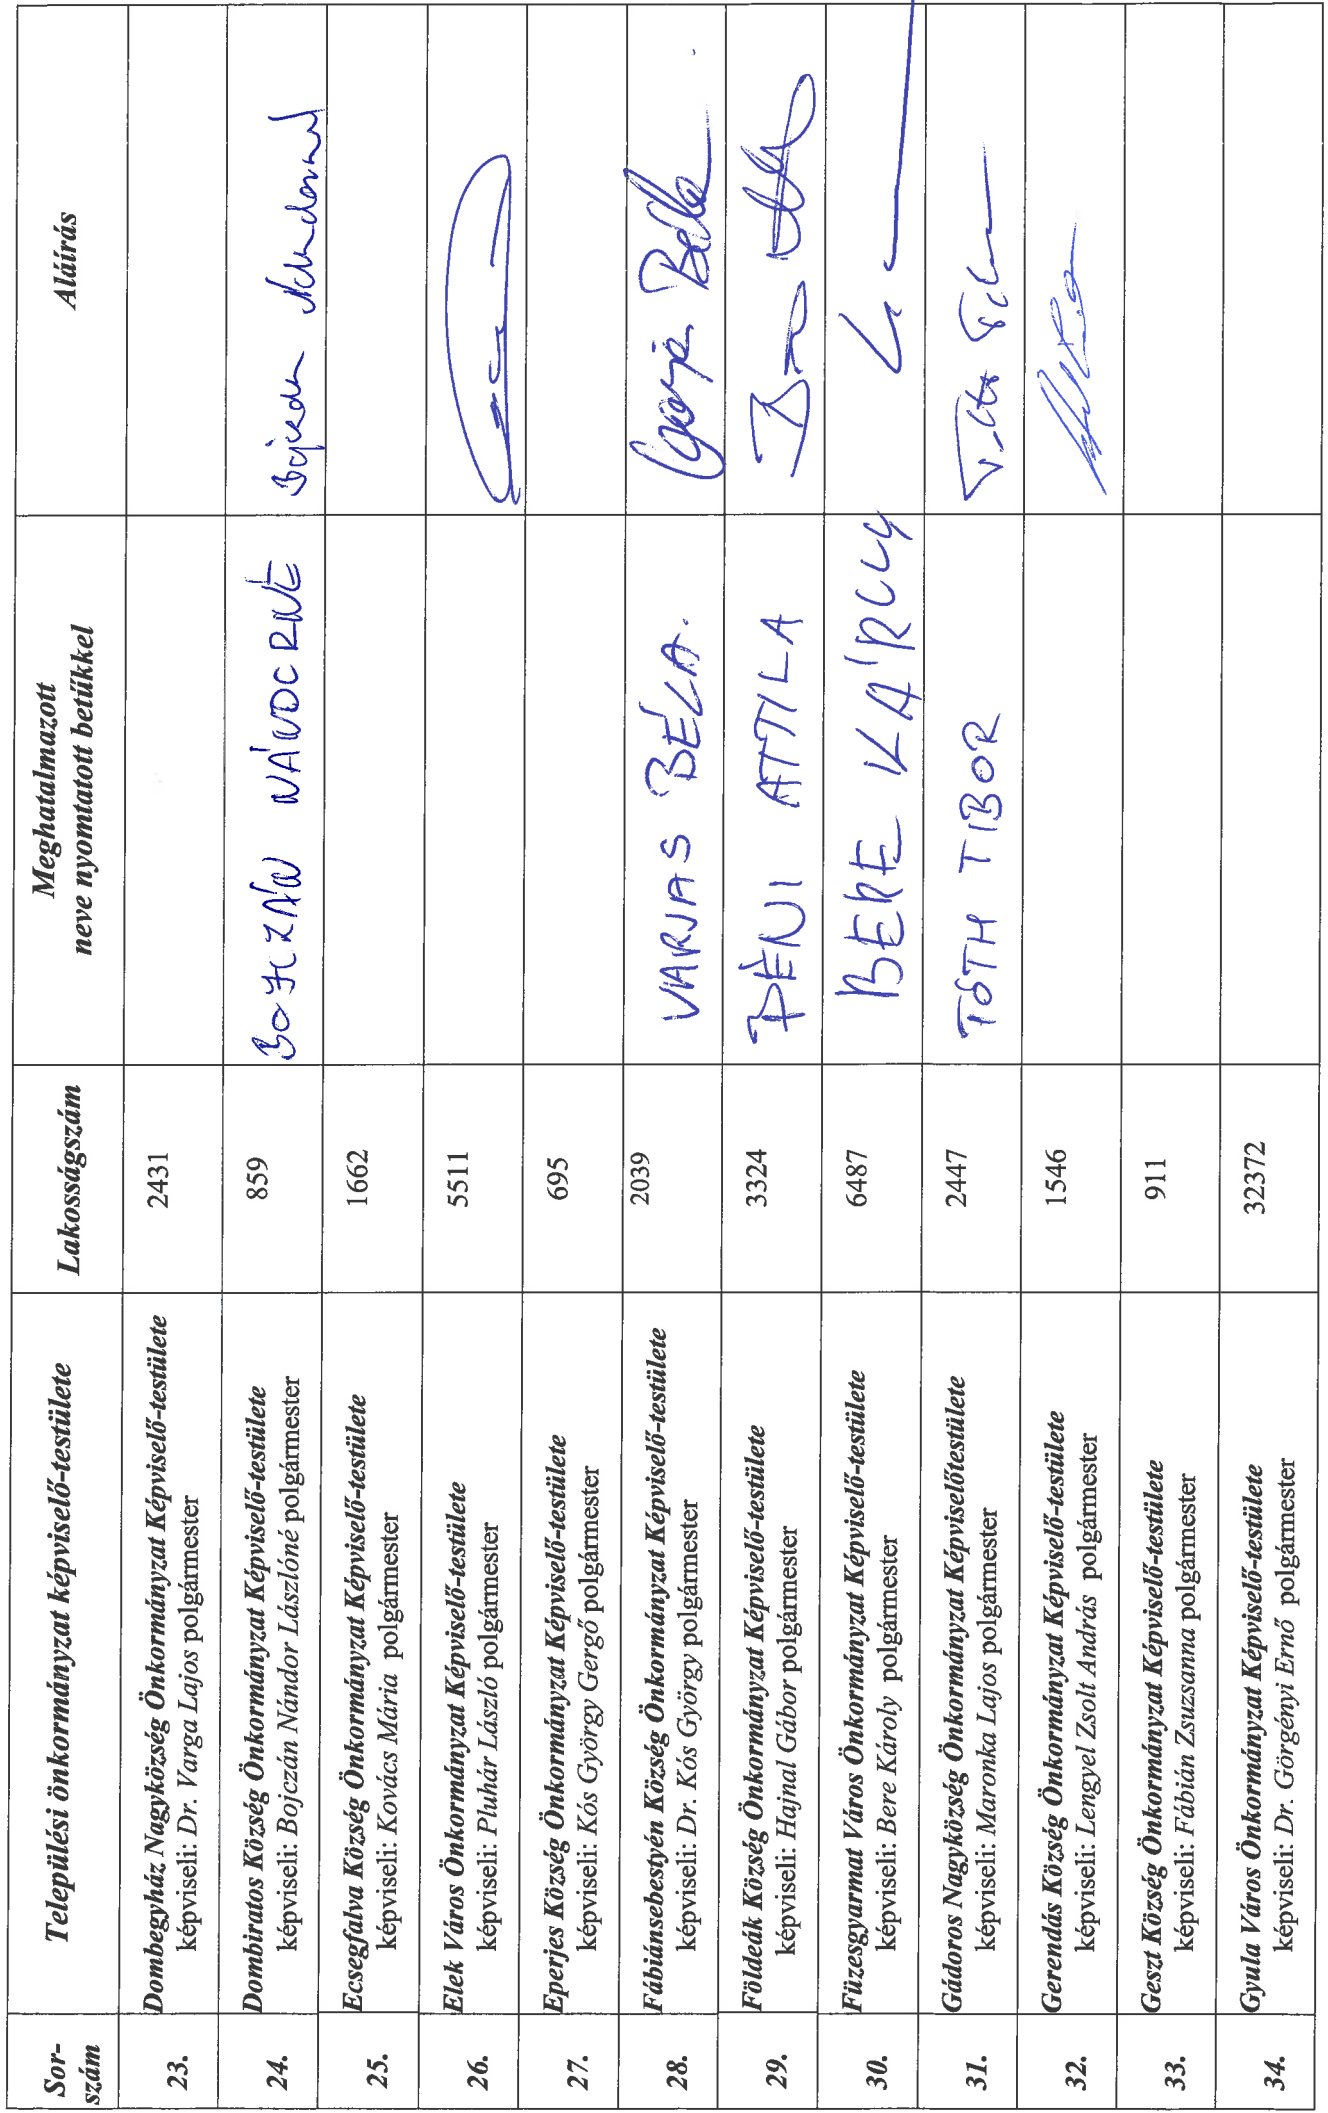 Sor-
szám
Települési önkormányzat képviselő-testülete
Lakosságszám
Meghatalmazott
neve nyomtatott betűkkel
Aláírás
23.
Dombegyház Nagyközség Önkormányzat Képviselő-testülete
képviseli: Dr. Varga Lajos polgármester
2431
24.
Dombiratos Község Önkormányzat Képviselő-testülete
képviseli: Bojczán Nándor Lászlóné polgármester
859
BOJCZÁN NÁNDORNÉ
25.
Ecsegfalva Község Önkormányzat Képviselő-testülete
képviseli: Kovács Mária polgármester
1662
26.
Elek Város Önkormányzat Képviselő-testülete
képviseli: Pluhár László polgármester
5511
27.
Eperjes Község Önkormányzat Képviselő-testülete
képviseli: Kós György Gergő polgármester
695
28.
Fábiánsebestyén Község Önkormányzat Képviselő-testülete
képviseli: Dr. Kós György polgármester
2039
VARJAS BÉLA.
29.
Földeák Község Önkormányzat Képviselő-testülete
képviseli: Hajnal Gábor polgármester
3324
ATTILA
30.
Füzesgyarmat Város Önkormányzat Képviselő-testülete
képviseli: Bere Károly polgármester
6487
BERE KÁROLY
31.
Gádoros Nagyközség Önkormányzat Képviselőtestülete
képviseli: Maronka Lajos polgármester
2447
TÓTH TIBOR
32.
Gerendás Község Önkormányzat Képviselő-testülete
képviseli: Lengyel Zsolt András polgármester
1546
33.
Geszt Község Önkormányzat Képviselő-testülete
képviseli: Fábián Zsuzsanna polgármester
911
34.
Gyula Város Önkormányzat Képviselő-testülete
képviseli: Dr. Görgényi Ernő polgármester
32372